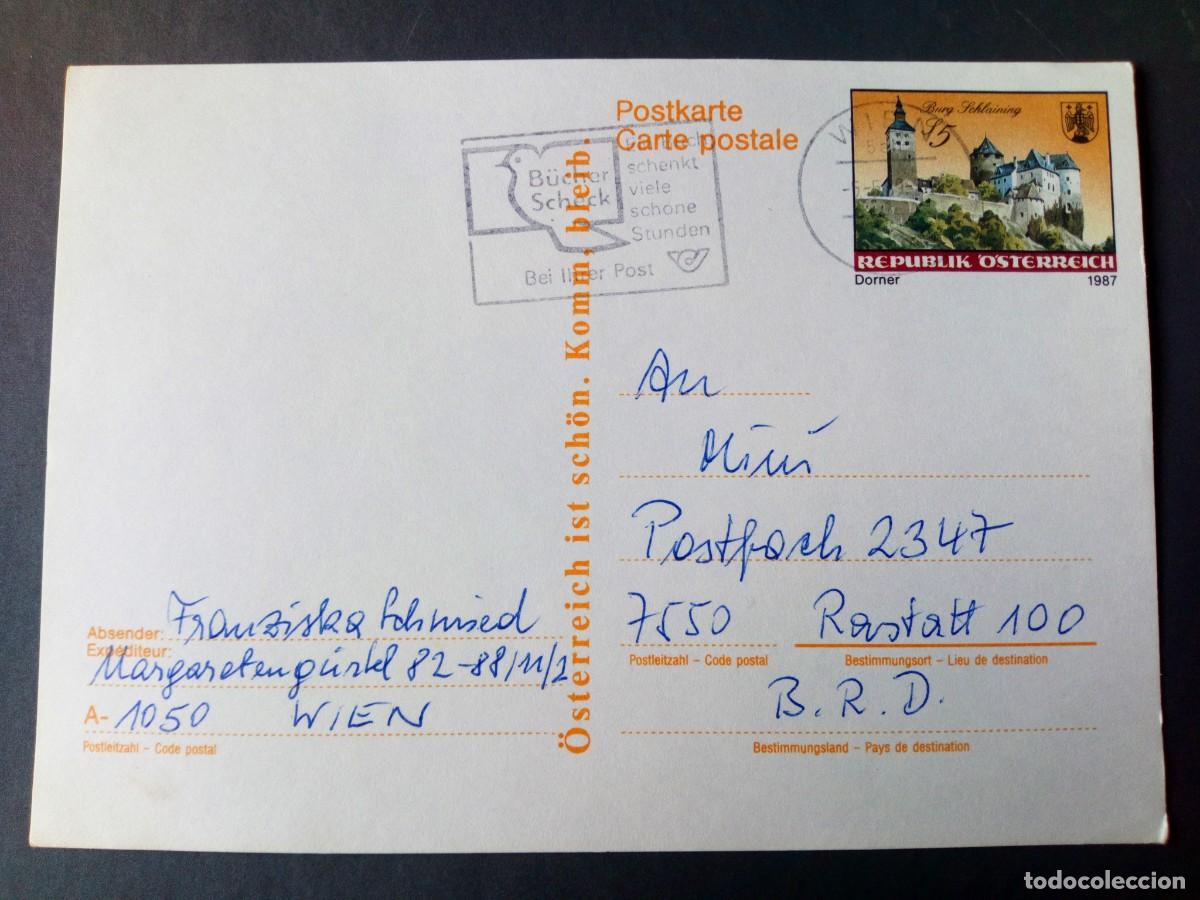 Postkarte
Carte postale
Burg Schlaining
S5
REPUBLIK ÖSTERREICH
Dorner 1987
WIEN
Bücher
Scheck
schenkt
viele
schöne
Stunden
Bei Ihrer Post
Österreich ist schön. Komm, bleib.
An
Mini
Postfach 2347
7550 Rastatt 100
Postleitzahl – Code postal Bestimmungsort – Lieu de destination
B.R.D.
Bestimmungsland – Pays de destination
Absender: Franziska Schmied
Expéditeur:
Margaretengürtel 82-88/11/2
A-1050 WIEN
Postleitzahl – Code postal
todocoleccion